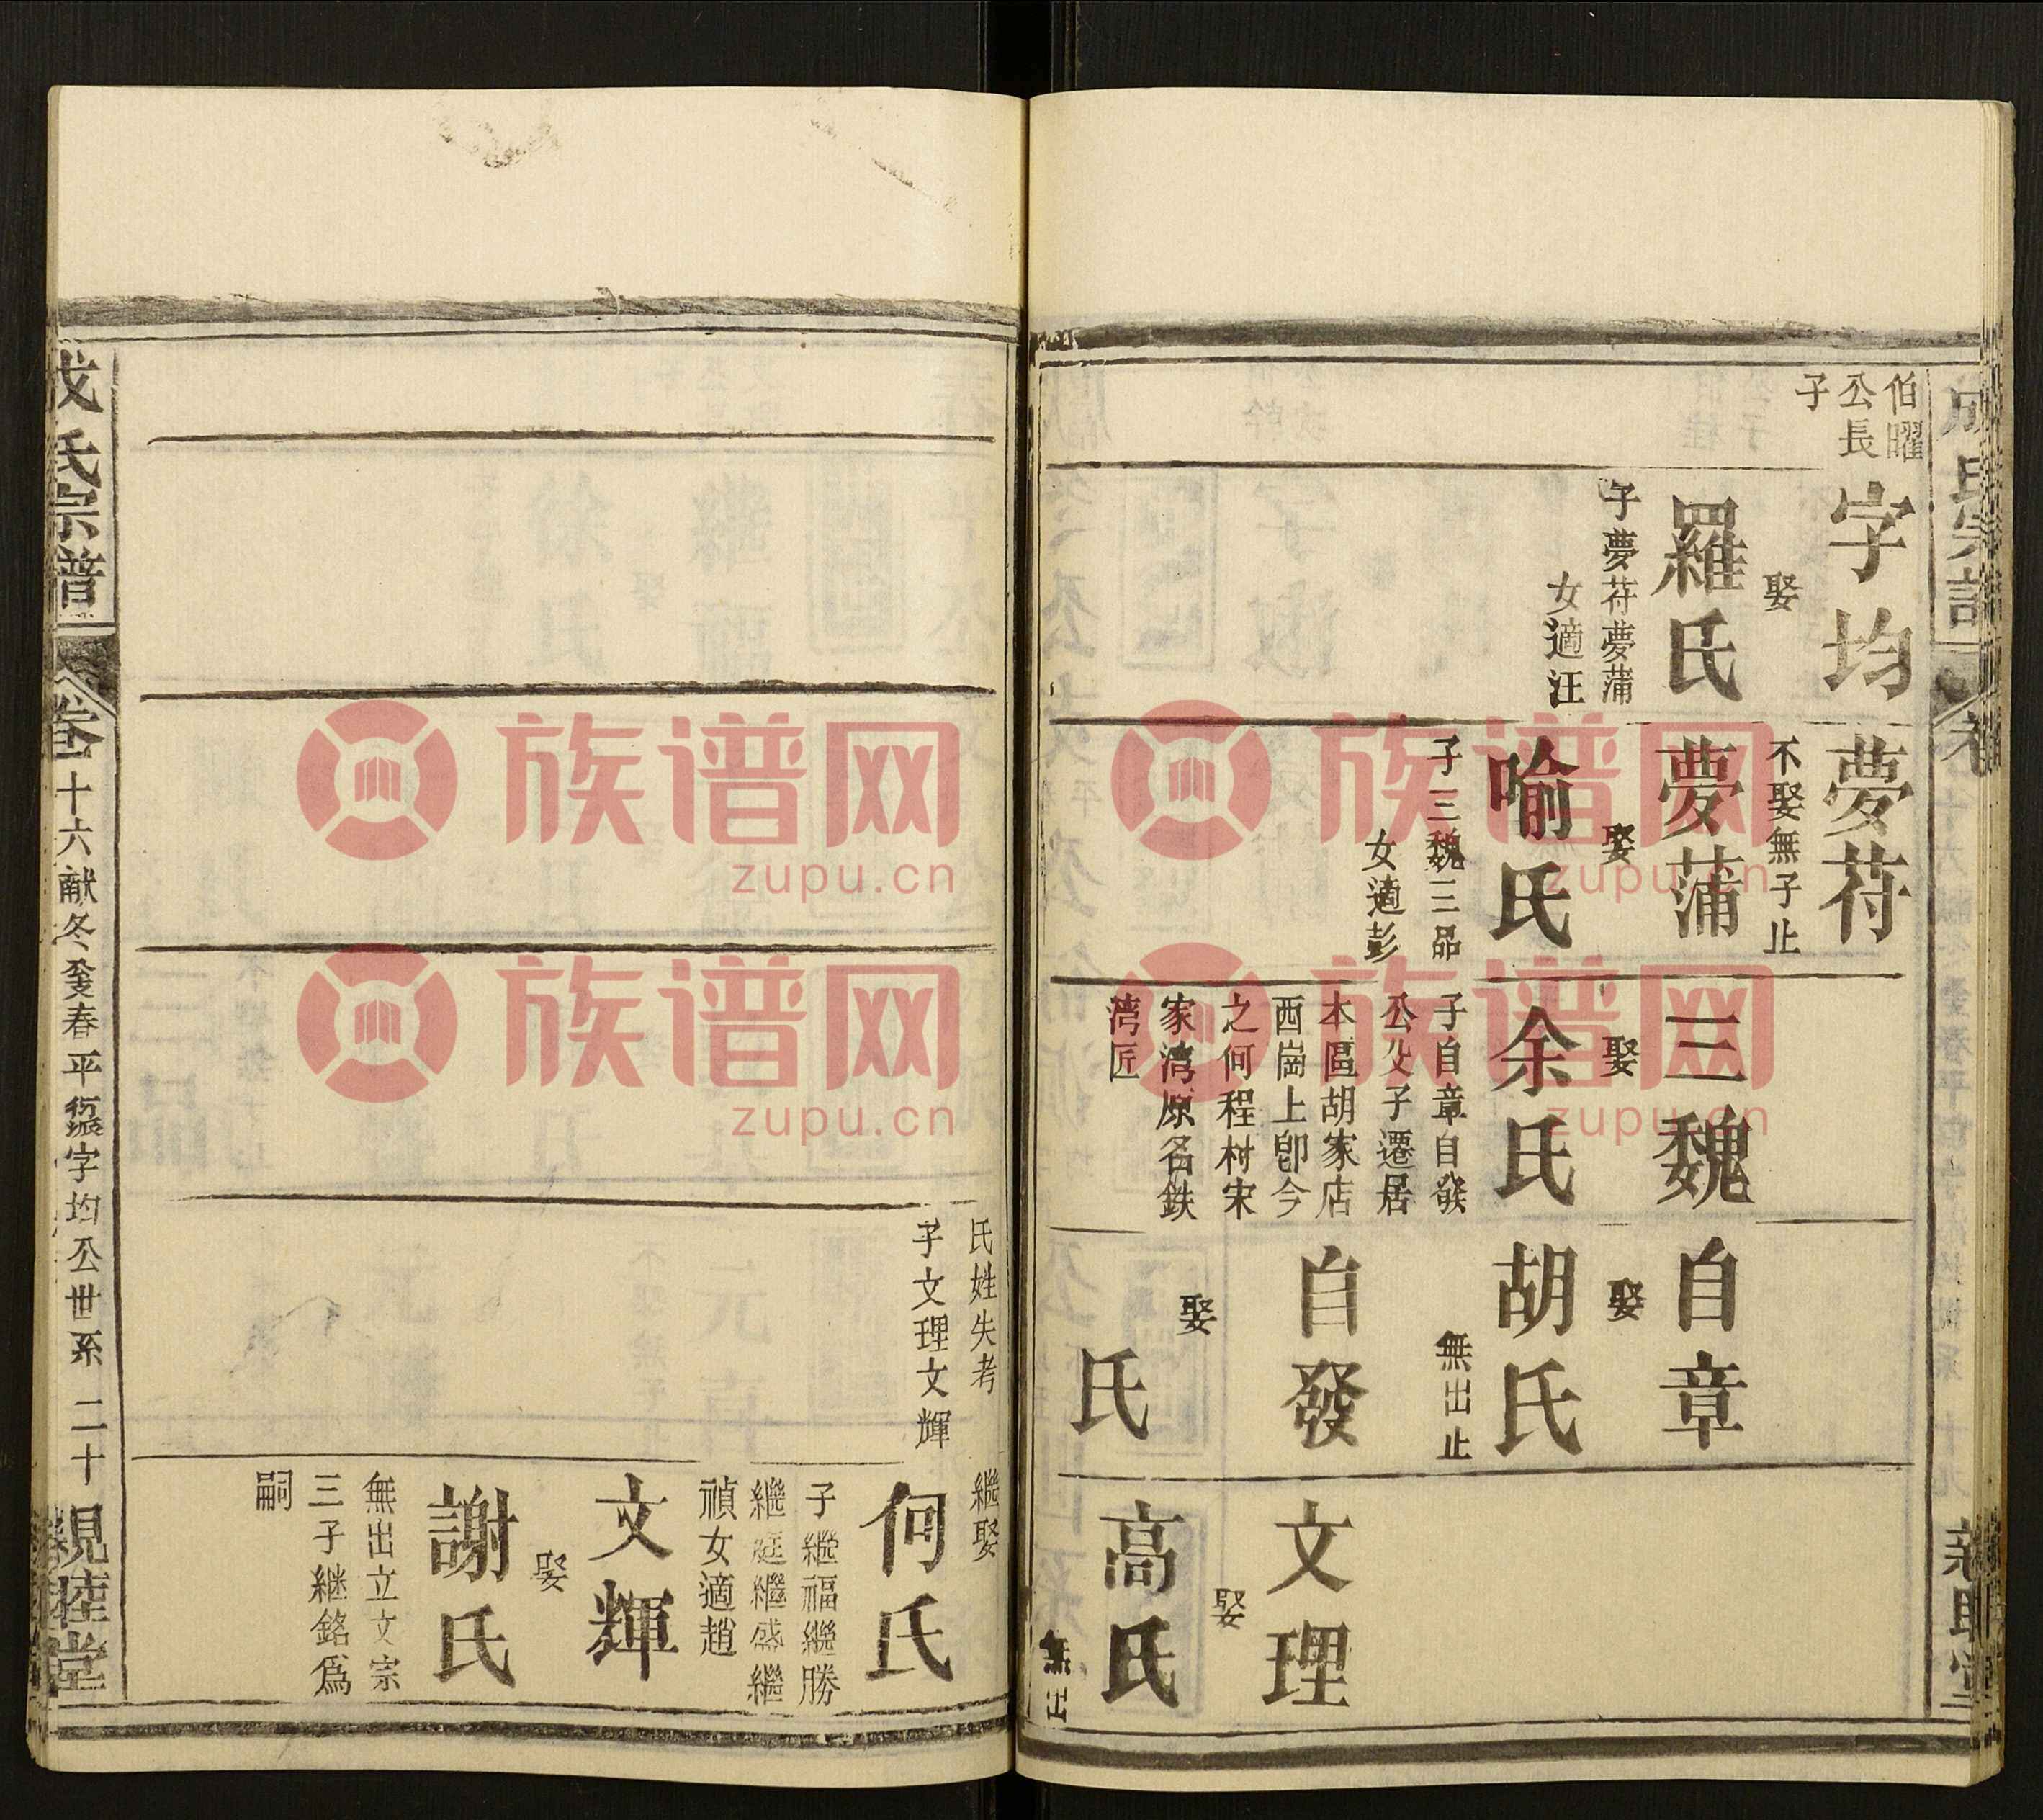 伯曜
公長
子
字均
娶
羅氏
子夢苻夢蒲
女適汪
夢苻
不娶無子止
夢蒲
娶
喻氏
子三魏三品
女適彭
三魏
娶
余氏
子自章自發
公父子遷居
本區胡家店
西崗上卽今
之何程村宋
家湾原名鉄
湾匠
自章
娶
胡氏
無出止
自發
娶
氏
文理
娶
高氏
無出
氏姓失考
子文理文輝
繼娶
何氏
子繼福繼勝
繼庭繼盛繼
禎女適趙
文輝
娶
謝氏
無出立文宗
三子継銘爲
嗣
成氏宗譜
卷十六献冬癸春平
字均公世系
二十
親睦堂
族谱网
zupu.cn
族谱网
zupu.cn
族谱网
zupu.cn
族谱网
zupu.cn